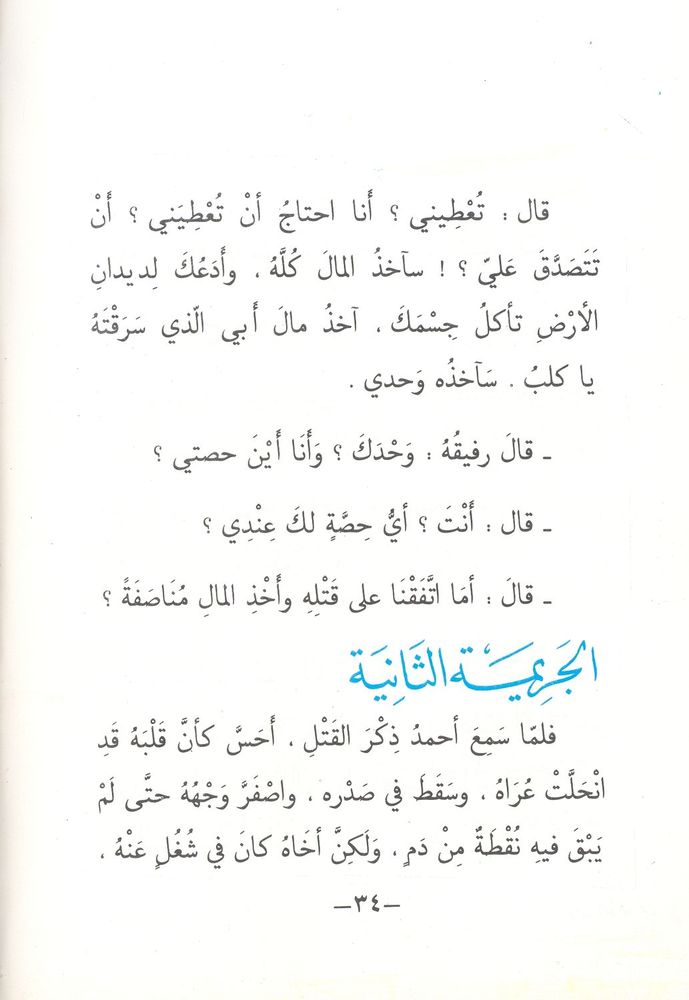 قال : تُعْطِيني ؟ أَنا احتاجُ أنْ تُعْطِيَني ؟ أَنْ
تَتَصَدَّقَ عَليّ ؟ ! سآخذُ المالَ كُلَّهُ ، وأَدَعُكَ لِديدانِ
الأرْضِ تأكلُ جِسْمَكَ ، آخذُ مالَ أَبي الّذي سَرَقْتَهُ
يا كلبُ . سَآخذُه وَحدي .
ـ قالَ رفيقُهُ : وَحْدَكَ ؟ وَأَنَا أَيْنَ حصتي ؟
ـ قال : أَنْتَ ؟ أيُّ حِصَّةٍ لكَ عِنْدِي ؟
ـ قالَ : أمَا اتَّفَقْنَا على قَتْلِهِ وأَخْذِ المالِ مُنَاصَفَةً ؟
الجَرِيمَة الثَانِيَة
فلمّا سَمِعَ أحمدُ ذِكْرَ القَتْلِ ، أَحَسَّ كأنَّ قَلْبَهُ قَدِ
انْحَلَّتْ عُرَاهُ ، وسَقَطَ في صَدْره ، واصْفَرَّ وَجْهُهُ حتَّى لَمْ
يَبْقَ فيهِ نُقْطَةٌ مِنْ دَمٍ ، وَلَكِنَّ أخَاهُ كانَ في شُغُلٍ عَنْهُ ،
–٣٤–